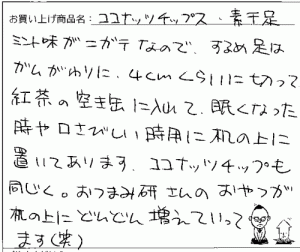 お買い上げ商品名：ココナッツチップス・素干足
ミント味がニガテなので、するめ足は
ガムがわりに、4cmくらいに切って
紅茶の空き缶に入れて、眠くなった
時や口さびしい時用に机の上に
置いてあります。ココナッツチップも
同じく。おつまみ研さんのおやつが
机の上にどんどん増えていって
ます(笑)